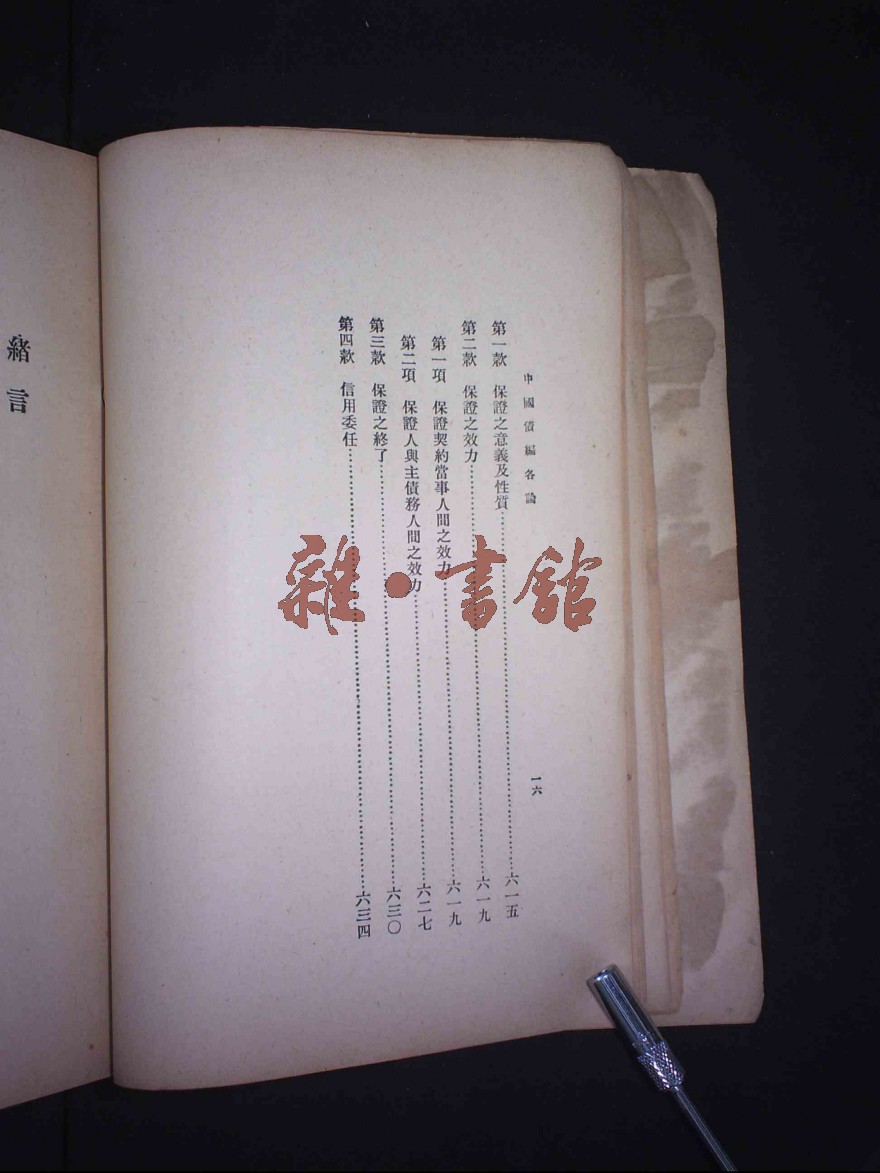 中國債編各論
一六
第一款 保證之意義及性質……六一五
第二款 保證之效力……六一九
第一項 保證契約當事人間之效力……六一九
第二項 保證人與主債務人間之效力……六二七
第三款 保證之終了……六三〇
第四款 信用委任……六三四
緒言
雜·書館